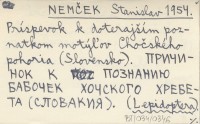 NEMČEK Stanislav 1954.
Príspevok k doterajším poz-
natkom motýľov Chočského
pohoria (Slovensko). ПРИЧИ-
НОК К ПОЗНАНИЮ
БАБОЧЕК ХОЧСКОГО ХРЕБЕ-
ТА (СЛОВАКИЯ). (Lepidoptera)